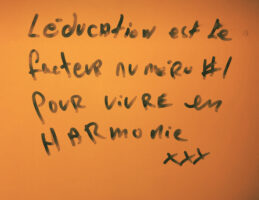 L'éducation est le
facteur numéro #1
pour vivre en
HARmonie
xxx